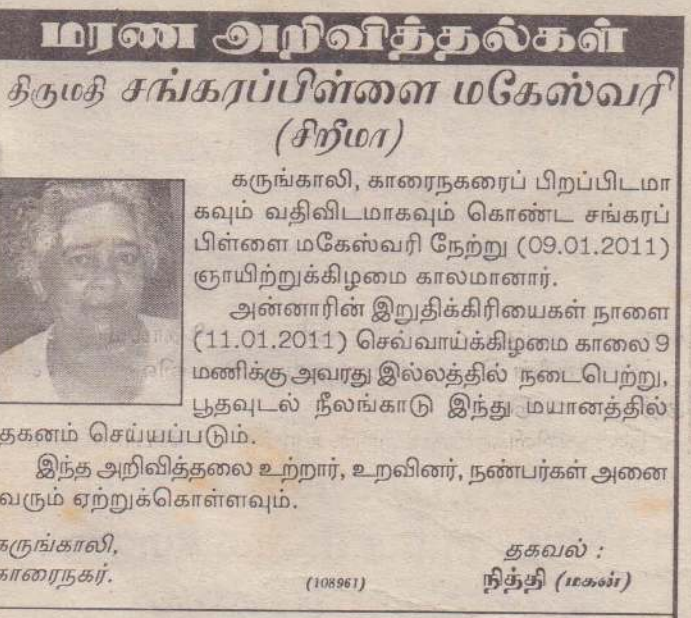 மரண அறிவித்தல்கள்
திருமதி சங்கரப்பிள்ளை மகேஸ்வரி
(சிறீமா)
கருங்காலி, காரைநகரைப் பிறப்பிடமா
கவும் வதிவிடமாகவும் கொண்ட சங்கரப்
பிள்ளை மகேஸ்வரி நேற்று (09.01.2011)
ஞாயிற்றுக்கிழமை காலமானார்.
அன்னாரின் இறுதிக்கிரியைகள் நாளை
(11.01.2011) செவ்வாய்க்கிழமை காலை 9
மணிக்கு அவரது இல்லத்தில் நடைபெற்று,
பூதவுடல் நீலங்காடு இந்து மயானத்தில்
தகனம் செய்யப்படும்.
இந்த அறிவித்தலை உற்றார், உறவினர், நண்பர்கள் அனை
வரும் ஏற்றுக்கொள்ளவும்.
கருங்காலி, தகவல் :
காரைநகர். (108961) நித்தி (மகன்)